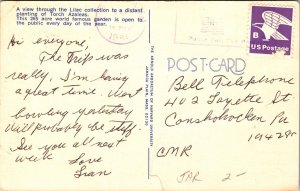 A view through the Lilac collection to a distant
planting of Torch Azaleas.
This 265 acre world famous garden is open to
the public every day of the year.
Hi everyone,
The Trip was
really. I'm having
a great time. Went
bowling yesterday
will probably be stiff.
See you all next
week. Love
Fran
THE ARNOLD ARBORETUM OF HARVARD UNIVERSITY
JAMAICA PLAIN, MASS. 02130
1981
B
US Postage
POST CARD
Bell Telephone
402 Fayette St
Conshohocken Pa
CMR
JAR 2-